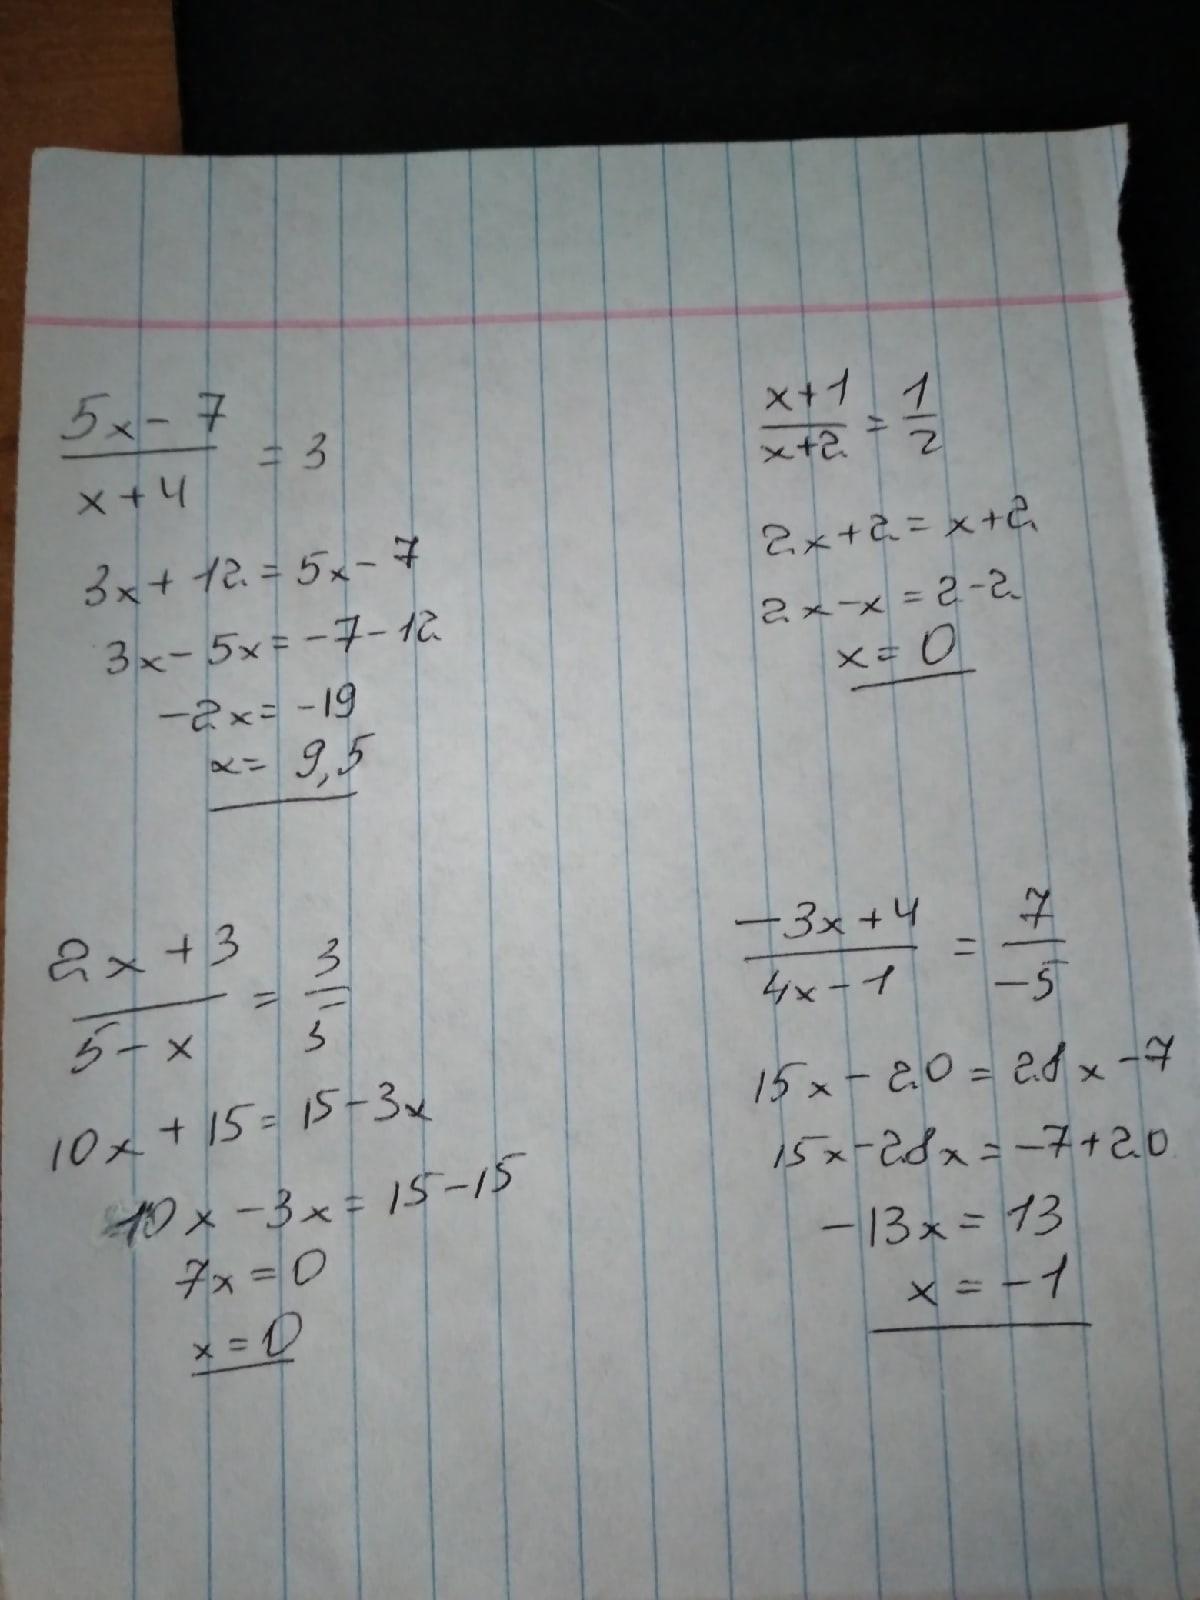 5x - 7 / x + 4 = 3
3x + 12 = 5x - 7
3x - 5x = -7 - 12
-2x = -19
x = 9,5
x+1 / x+2 = 1 / 2
2x + 2 = x + 2
2x - x = 2 - 2
x = 0
2x + 3 / 5 - x = 3 / 5
10x + 15 = 15 - 3x
10x - 3x = 15 - 15
7x = 0
x = 0
-3x + 4 / 4x - 1 = 7 / -5
15x - 20 = 28x - 7
15x - 28x = -7 + 20
-13x = 13
x = -1